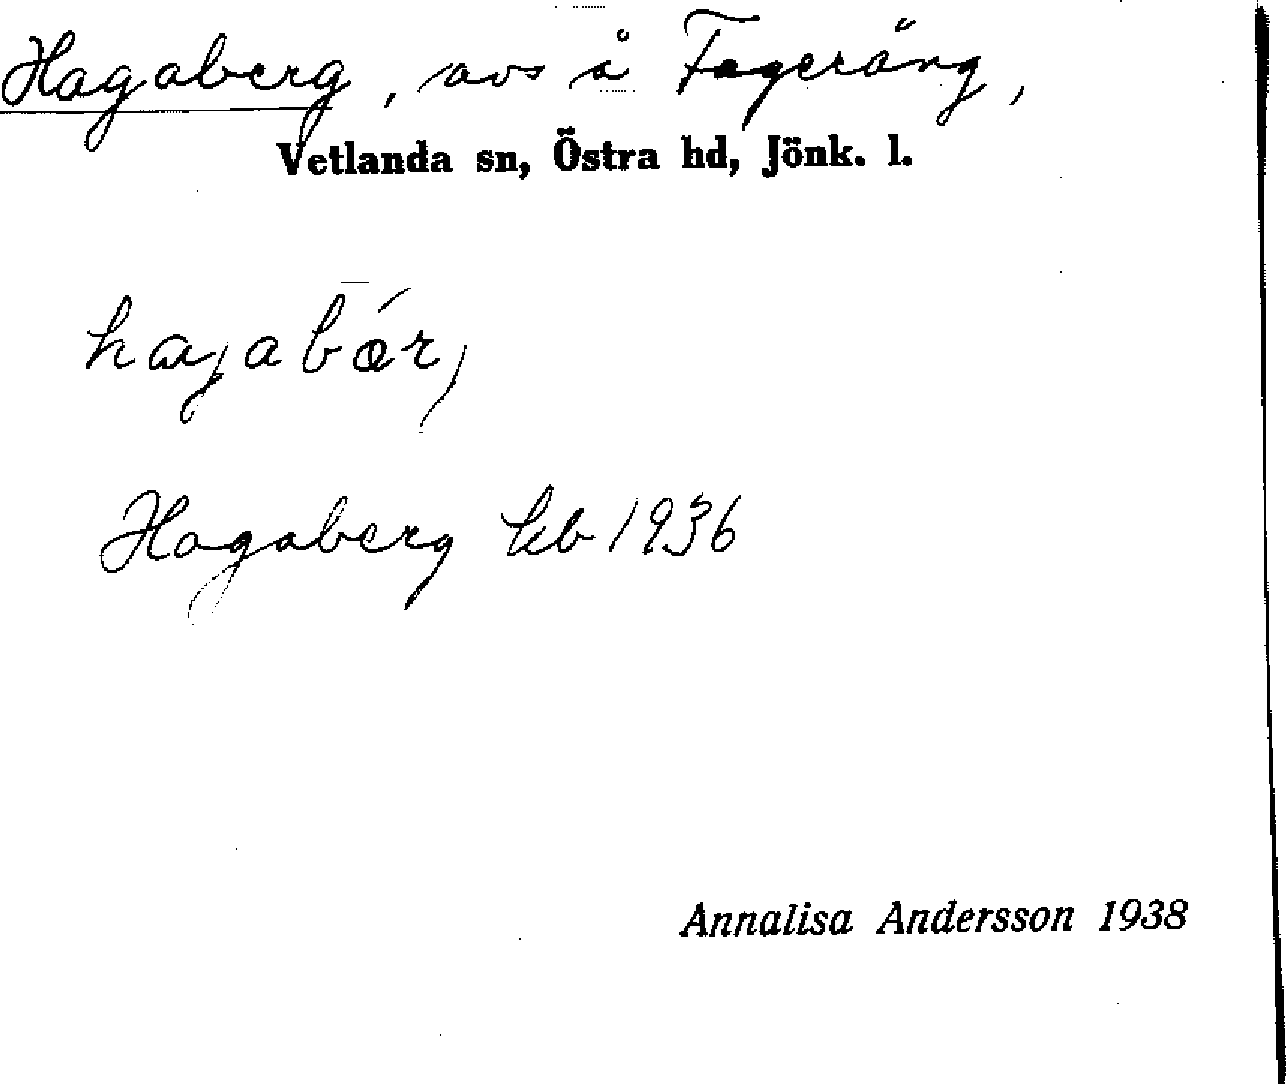 Hagaberg, avs å Fageräng,
Vetlanda sn, Östra hd, Jönk. l.
Hagaberg kb 1936
Annalisa Andersson 1938